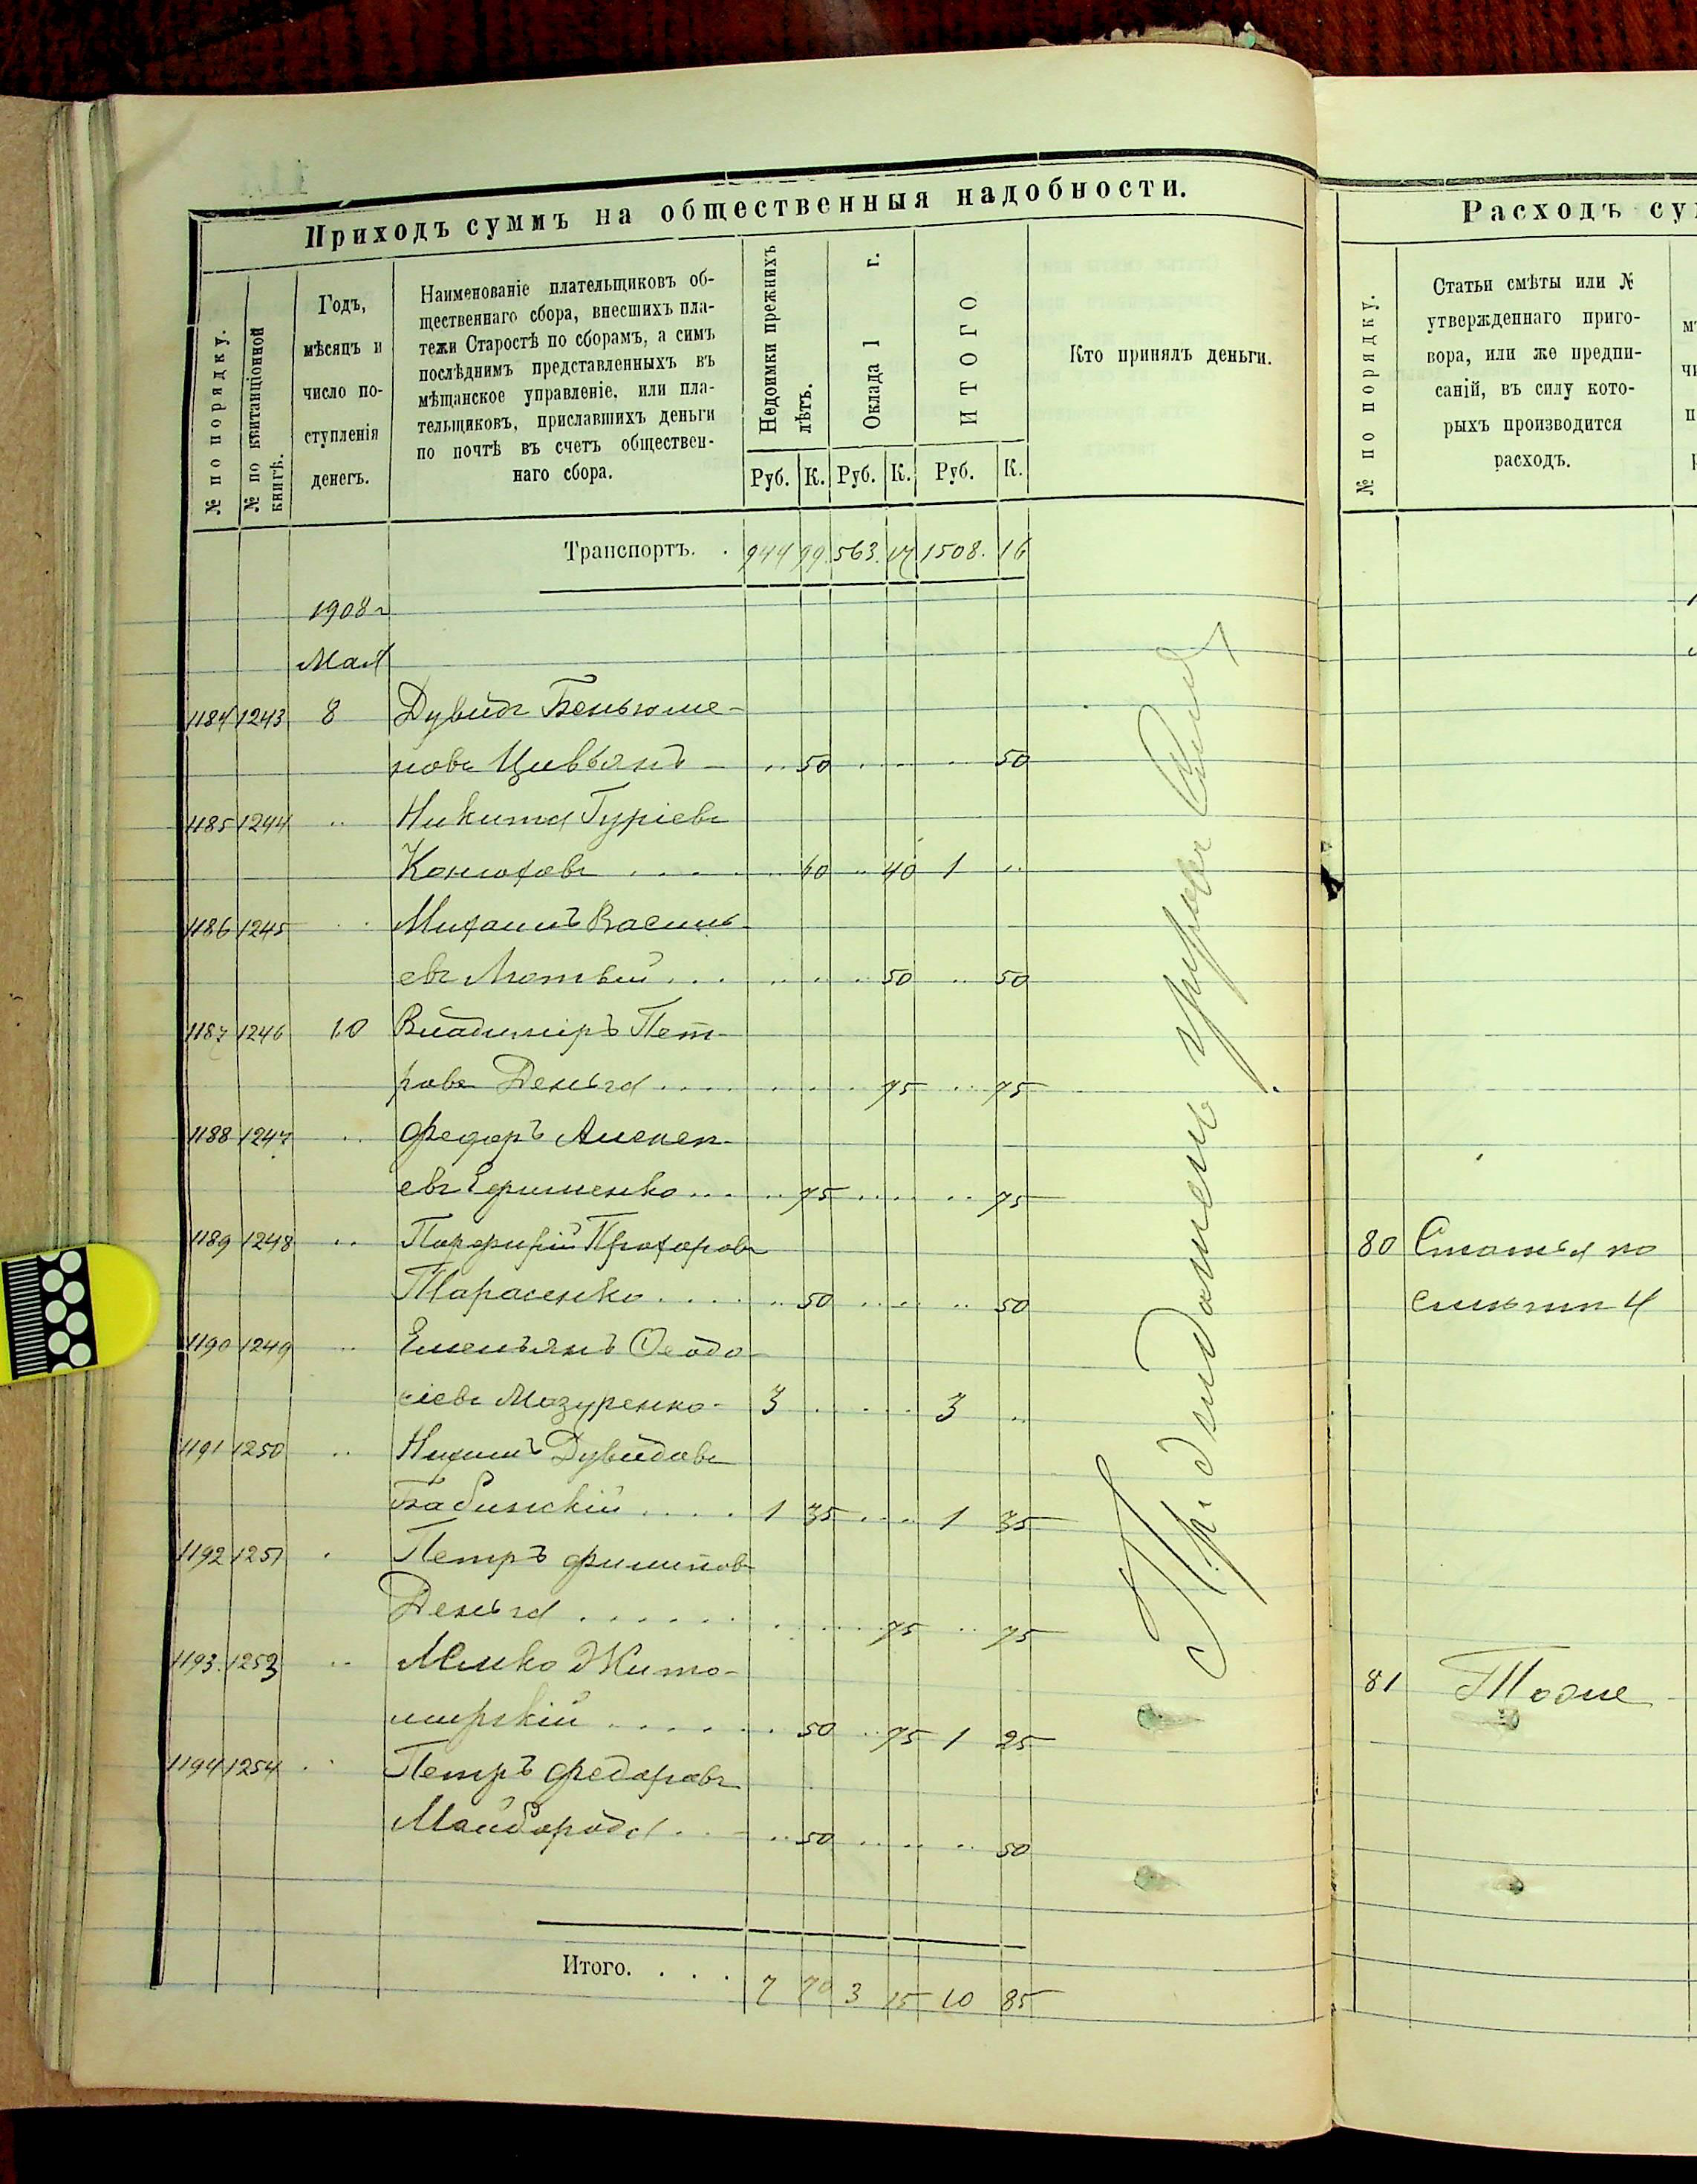 Приходъ суммъ на общественныя надобности.
№ по порядку.
№ по квитанціонной книгѣ.
Годъ,
мѣсяцъ и
число по-
ступленія
денегъ.
Наименованіе плательщиковъ об-
щественнаго сбора, внесшихъ пла-
тежи Старостѣ по сборамъ, а симъ
послѣднимъ представленныхъ въ
мѣщанское управленіе, или пла-
тельщиковъ, приславшихъ деньги
по почтѣ въ счетъ обществен-
наго сбора.
Недоимки прежнихъ лѣтъ.
Оклада 1 г.
ИТОГО
Кто принялъ деньги.
Руб. К. Руб. К. Руб. К.
Транспортъ. . 944 99 563. 17 1508. 16
1908 г
Мая
1184 1243 8 Дувидъ Беньюме-
новъ Цивьянъ - .. 50 .. .. .. 50
1185 1244 .. Никита Гуріевъ
Конюховъ .... .. 60 .. 40 1 ..
1186 1245 .. Михаилъ Василь-
евъ Лютый ... .. .. .. 50 .. 50
1187 1246 10 Владиміръ Пет-
ровъ Деньга .... 75 .. 75
1188 1247 .. Федоръ Алексѣ-
евъ Ефименко ... .. 75 .. .. .. 75
1189 1248 .. Порфирій Прохоровъ
Тарасенко .... .. 50 .. .. .. 50
1190 1249 .. Емельянъ Ѳеодо-
сіевъ Мазуренко - 3 .. .. .. 3 ..
1191 1250 .. Нихимъ Дувидовъ
Бабинскій .... 1 35 .. .. 1 35
1192 1251 . Петръ Филиповъ
Деньга ...... 75 .. 75
1193. 1253 .. Мошко Жито-
мирскій ..... 50 .. 75 1 25
1194 1254 . Петръ Федоровъ
Майборода .. - .. 50 .. .. .. 50
Итого. . . . 7 70 3 15 10 85
Расходъ су
№ по порядку.
Статьи смѣты или №
утвержденнаго приго-
вора, или же предпи-
саній, въ силу кото-
рыхъ производится
расходъ.
80 Статья по
смѣтѣ 4
81 Тоже